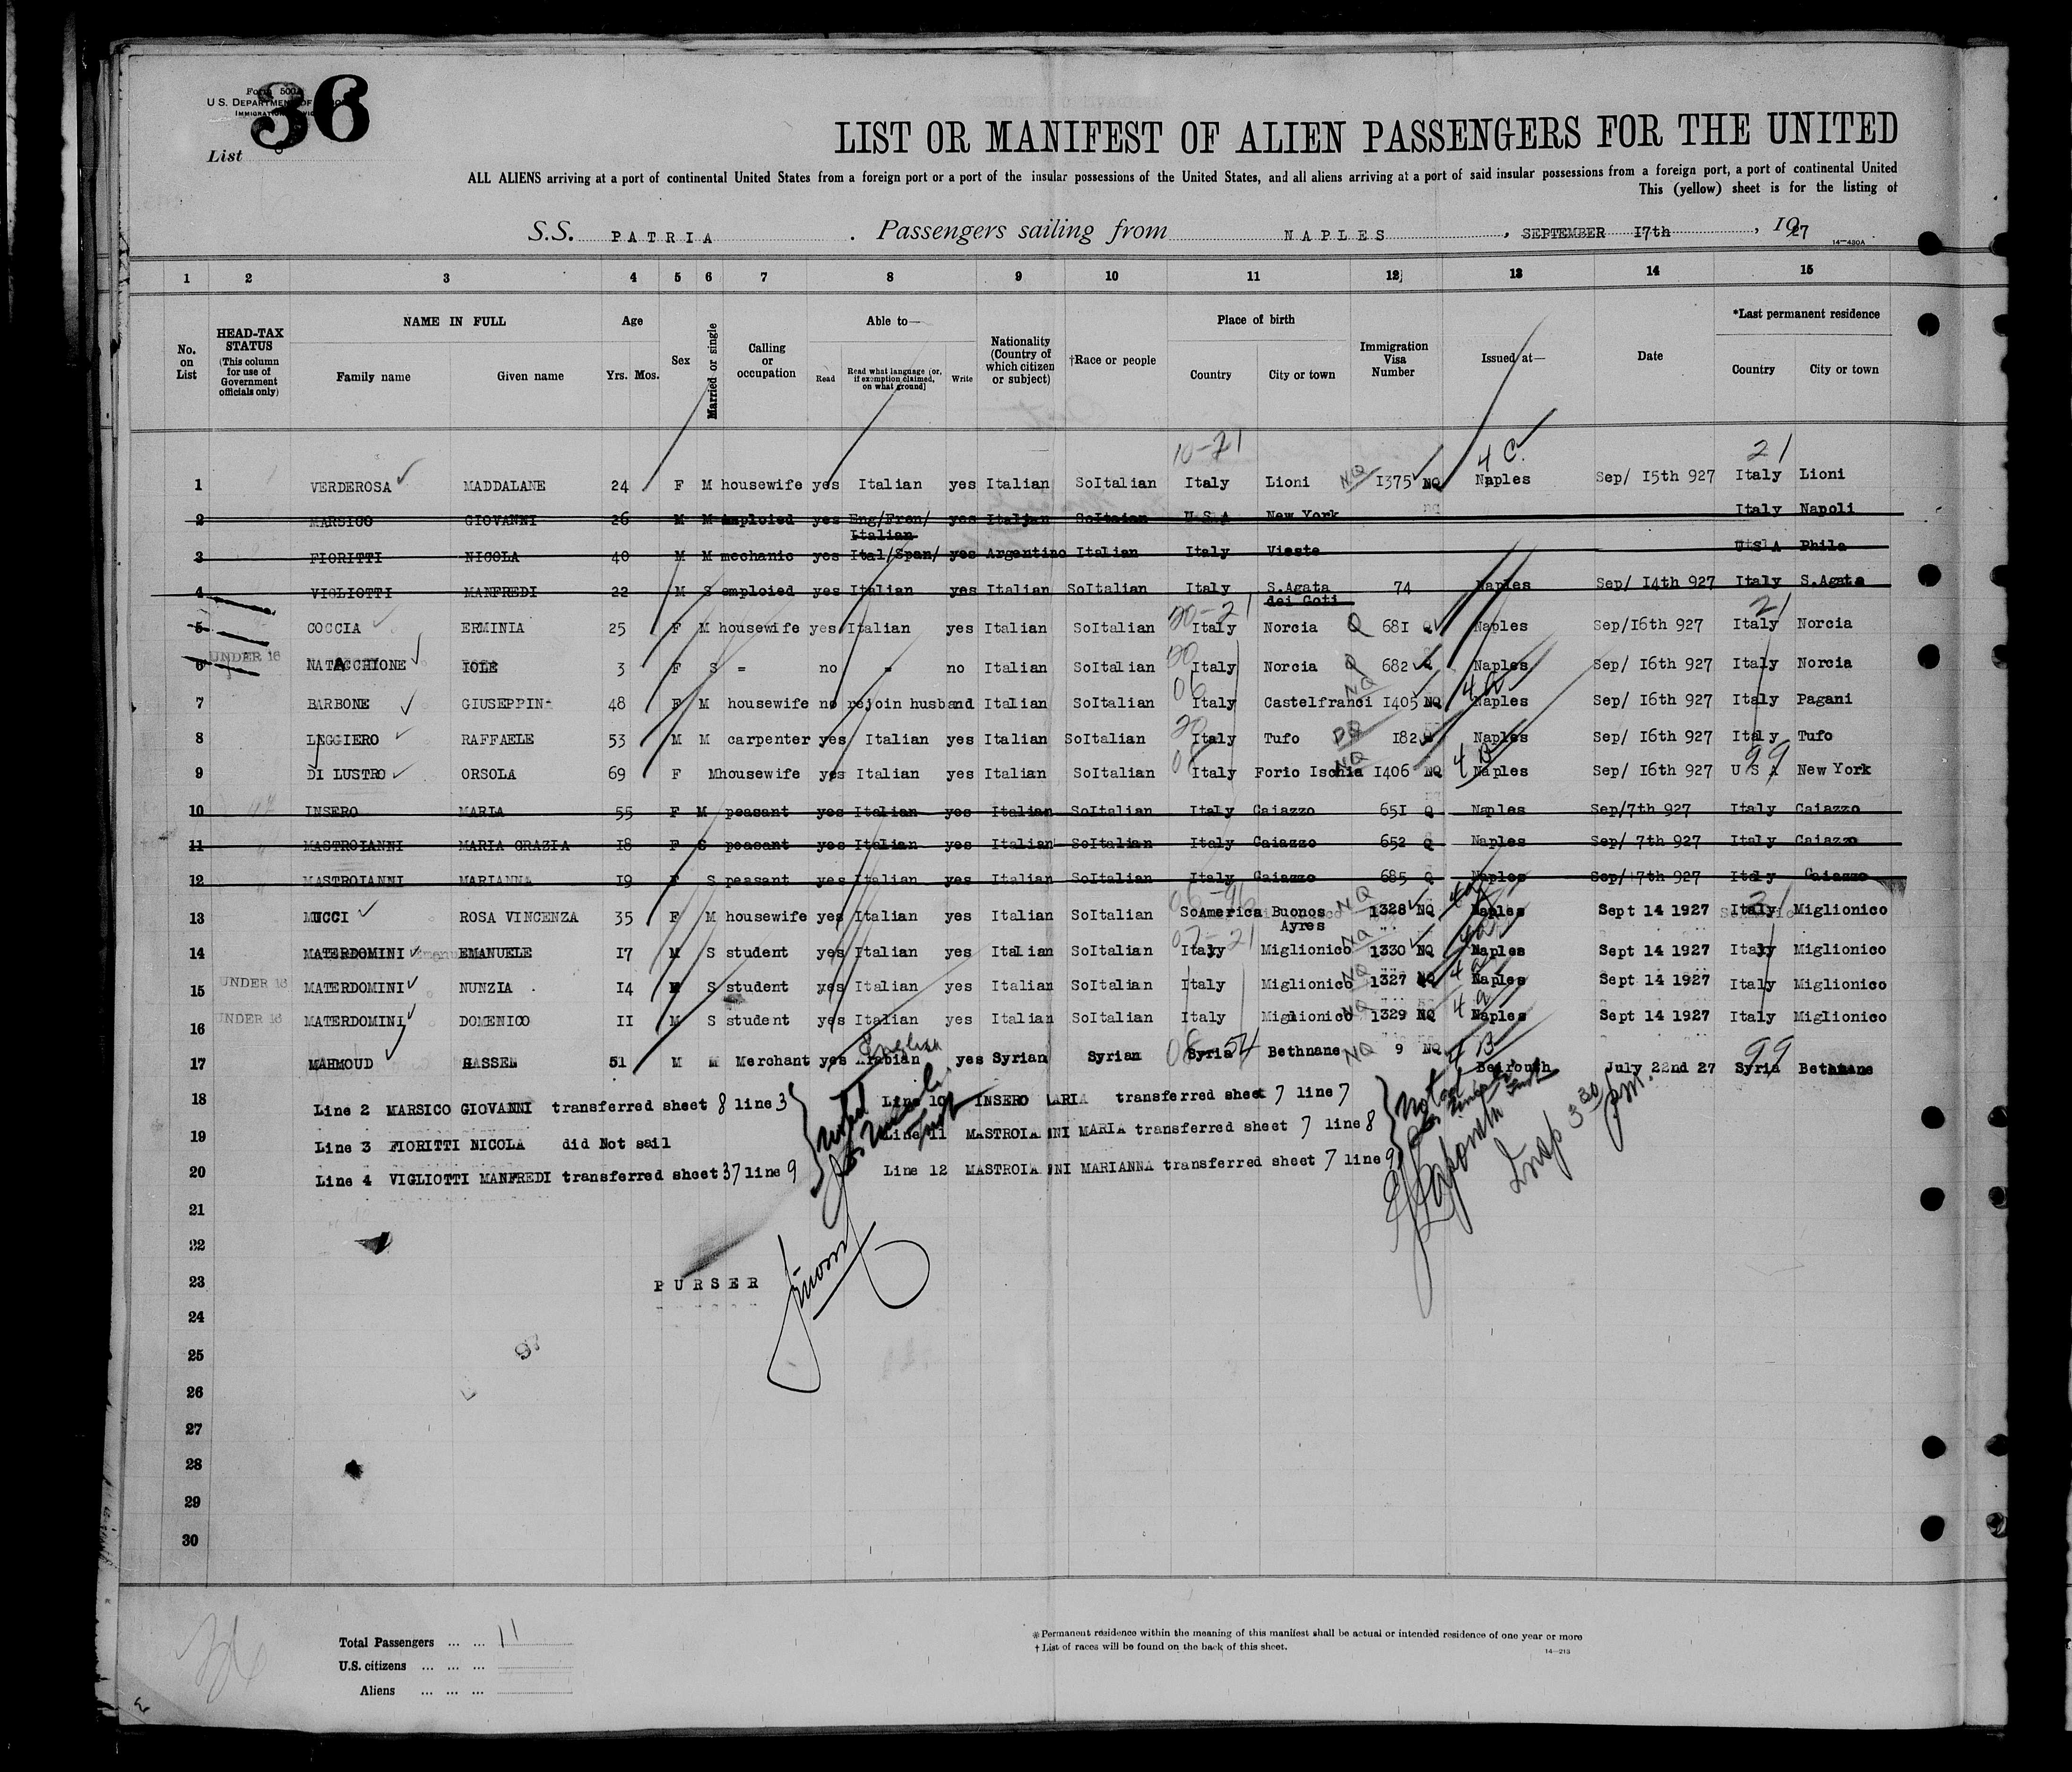 Form 500
U.S. DEPARTMENT OF
IMMIGRATION
36
List
LIST OR MANIFEST OF ALIEN PASSENGERS FOR THE UNITED
ALL ALIENS arriving at a port of continental United States from a foreign port or a port of the insular possessions of the United States, and all aliens arriving at a port of said insular possessions from a foreign port, a port of continental United
This (yellow) sheet is for the listing of
S.S. PATRIA . Passengers sailing from NAPLES , SEPTEMBER 17th , 1927
14—430A
1 2 3 4 5 6 7 8 9 10 11 12 13 14 15
No. on List
HEAD-TAX STATUS (This column for use of Government officials only)
NAME IN FULL
Family name Given name
Age
Yrs. Mos.
Sex
Married or single
Calling or occupation
Able to—
Read Read what language [or, if exemption claimed, on what ground] Write
Nationality (Country of which citizen or subject)
†Race or people
Place of birth
Country City or town
Immigration Visa Number
Issued at—
Date
*Last permanent residence
Country City or town
10-21 4 C. 21
1 VERDEROSA MADDALANE 24 F M housewife yes Italian yes Italian SoItalian Italy Lioni NQ 1375 NQ Naples Sep/ 15th 927 Italy Lioni
2 MARSICO GIOVANNI 26 M M emploied yes Eng/Fren/ Italian yes Italian SoItaian U S A New York Italy Napoli
3 FIORITTI NICOLA 40 M M mechanic yes Ital/Span/ yes Argentino Italian Italy Vieste U S A Phila
4 VIGLIOTTI MANFREDI 22 M S emploied yes Italian yes Italian SoItalian Italy S.Agata dei Goti 74 Naples Sep/ 14th 927 Italy S.Agata
20-21 21
5 COCCIA ERMINIA 25 F M housewife yes Italian yes Italian SoItalian Italy Norcia Q 681 Q Naples Sep/16th 927 Italy Norcia
6 UNDER 16 NATACCHIONE IOLE 3 F S = no = no Italian SoItalian 20 Italy Norcia Q 682 Q Naples Sep/ 16th 927 Italy Norcia
7 BARBONE GIUSEPPIN 48 F M housewife no rejoin husband Italian SoItalian 06 Italy Castelfranci NQ 1405 NQ 4 a Naples Sep/ 16th 927 Italy Pagani
8 LEGGIERO RAFFAELE 53 M M carpenter yes Italian yes Italian SoItalian 20 Italy Tufo PQ 182 Naples Sep/ 16th 927 Italy Tufo
9 DI LUSTRO ORSOLA 69 F M housewife yes Italian yes Italian SoItalian Italy Forio Ischia NQ 1406 NQ 4 B Naples Sep/ 16th 927 99 U S A New York
10 INSERO MARIA 55 F M peasant yes Italian yes Italian SoItalian Italy Caiazzo 651 Q Naples Sep/7th 927 Italy Caiazzo
11 MASTROIANNI MARIA GRAZIA 18 F S peasant yes Italian yes Italian SoItalian Italy Caiazzo 652 Q Naples Sep/ 7th 927 Italy Caiazzo
12 MASTROIANNI MARIANNA 19 F S peasant yes Italian yes Italian SoItalian Italy Caiazzo 685 Q Naples Sep/ 7th 927 Italy Caiazzo
13 MUCCI ROSA VINCENZA 35 F M housewife yes Italian yes Italian SoItalian SoAmerica Buonos Ayres NQ 1328 NQ Naples Sept 14 1927 21 Italy Miglionico
14 MATERDOMINI EMANUELE 17 M S student yes Italian yes Italian SoItalian 07-21 Italy Miglionico NQ 1330 NQ 4a Naples Sept 14 1927 Italy Miglionico
15 UNDER 16 MATERDOMINI NUNZIA 14 S student yes Italian yes Italian SoItalian Italy Miglionico NQ 1327 NQ 4 a Naples Sept 14 1927 Italy Miglionico
16 UNDER 16 MATERDOMINI DOMENICO 11 M S student yes Italian yes Italian SoItalian Italy Miglionico NQ 1329 NQ 4 a Naples Sept 14 1927 Italy Miglionico
17 MAHMOUD HASSEN 51 M M Merchant yes Arabian English yes Syrian Syrian 08 Syria 54 Bethnane NQ 9 NQ 4 B Beirouth July 22nd 27 99 Syria Bethnane
18 Line 2 MARSICO GIOVANNI transferred sheet 8 line 3 Line 10 INSERO MARIA transferred sheet 7 line 7
19 Line 3 FIORITTI NICOLA did Not sail Line 11 MASTROIANNI MARIA transferred sheet 7 line 8
20 Line 4 VIGLIOTTI MANFREDI transferred sheet 37 line 9 Line 12 MASTROIANNI MARIANNA transferred sheet 7 line 9
Insp 3 30 pm.
21
22
23 PURSER
24
25
26
27
28
29
30
Total Passengers ... ... 11
U.S. citizens ... ... ...
Aliens ... ... ...
*Permanent residence within the meaning of this manifest shall be actual or intended residence of one year or more
† List of races will be found on the back of this sheet.
14—213
36